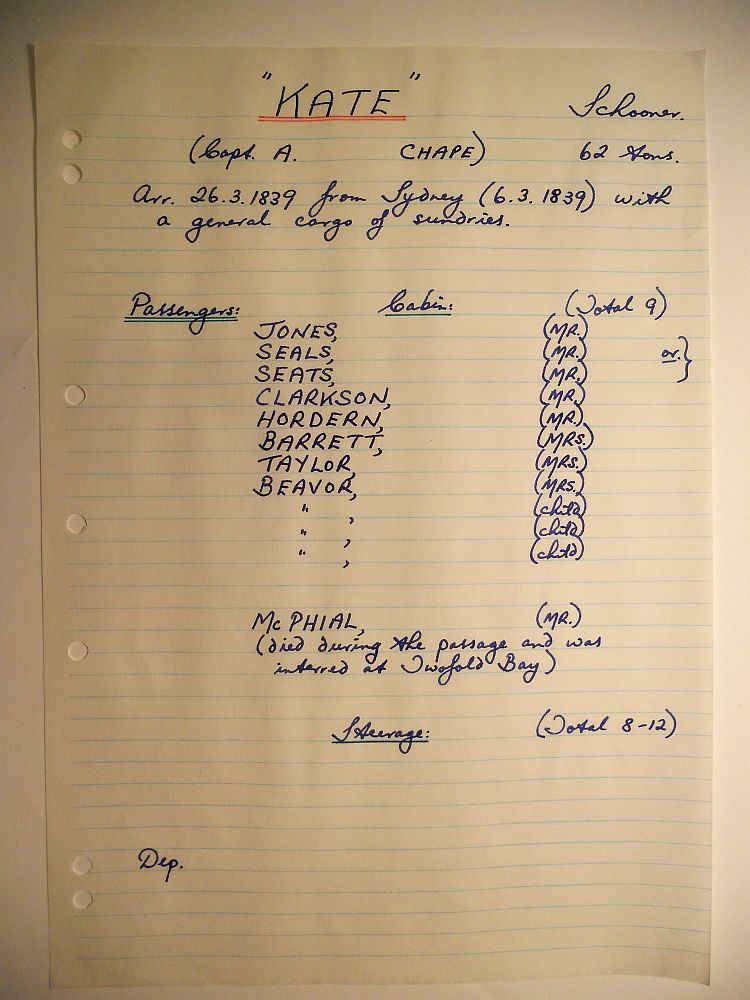 "KATE" Schooner.
(Capt. A. CHAPE) 62 Tons.
Arr. 26.3.1839 from Sydney (6.3.1839) with
a general cargo of sundries.
Passengers: Cabin: (Total 9)
JONES, (MR.)
SEALS, (MR.) or }
SEATS, (MR.)
CLARKSON, (MR.)
HORDERN, (MR.)
BARRETT, (MRS.)
TAYLOR, (MRS.)
BEAVOR, (MRS.)
" , (child)
" , (child)
" , (child)
McPHIAL, (MR.)
(died during the passage and was
interred at Twofold Bay)
Steerage: (Total 8-12)
Dep.